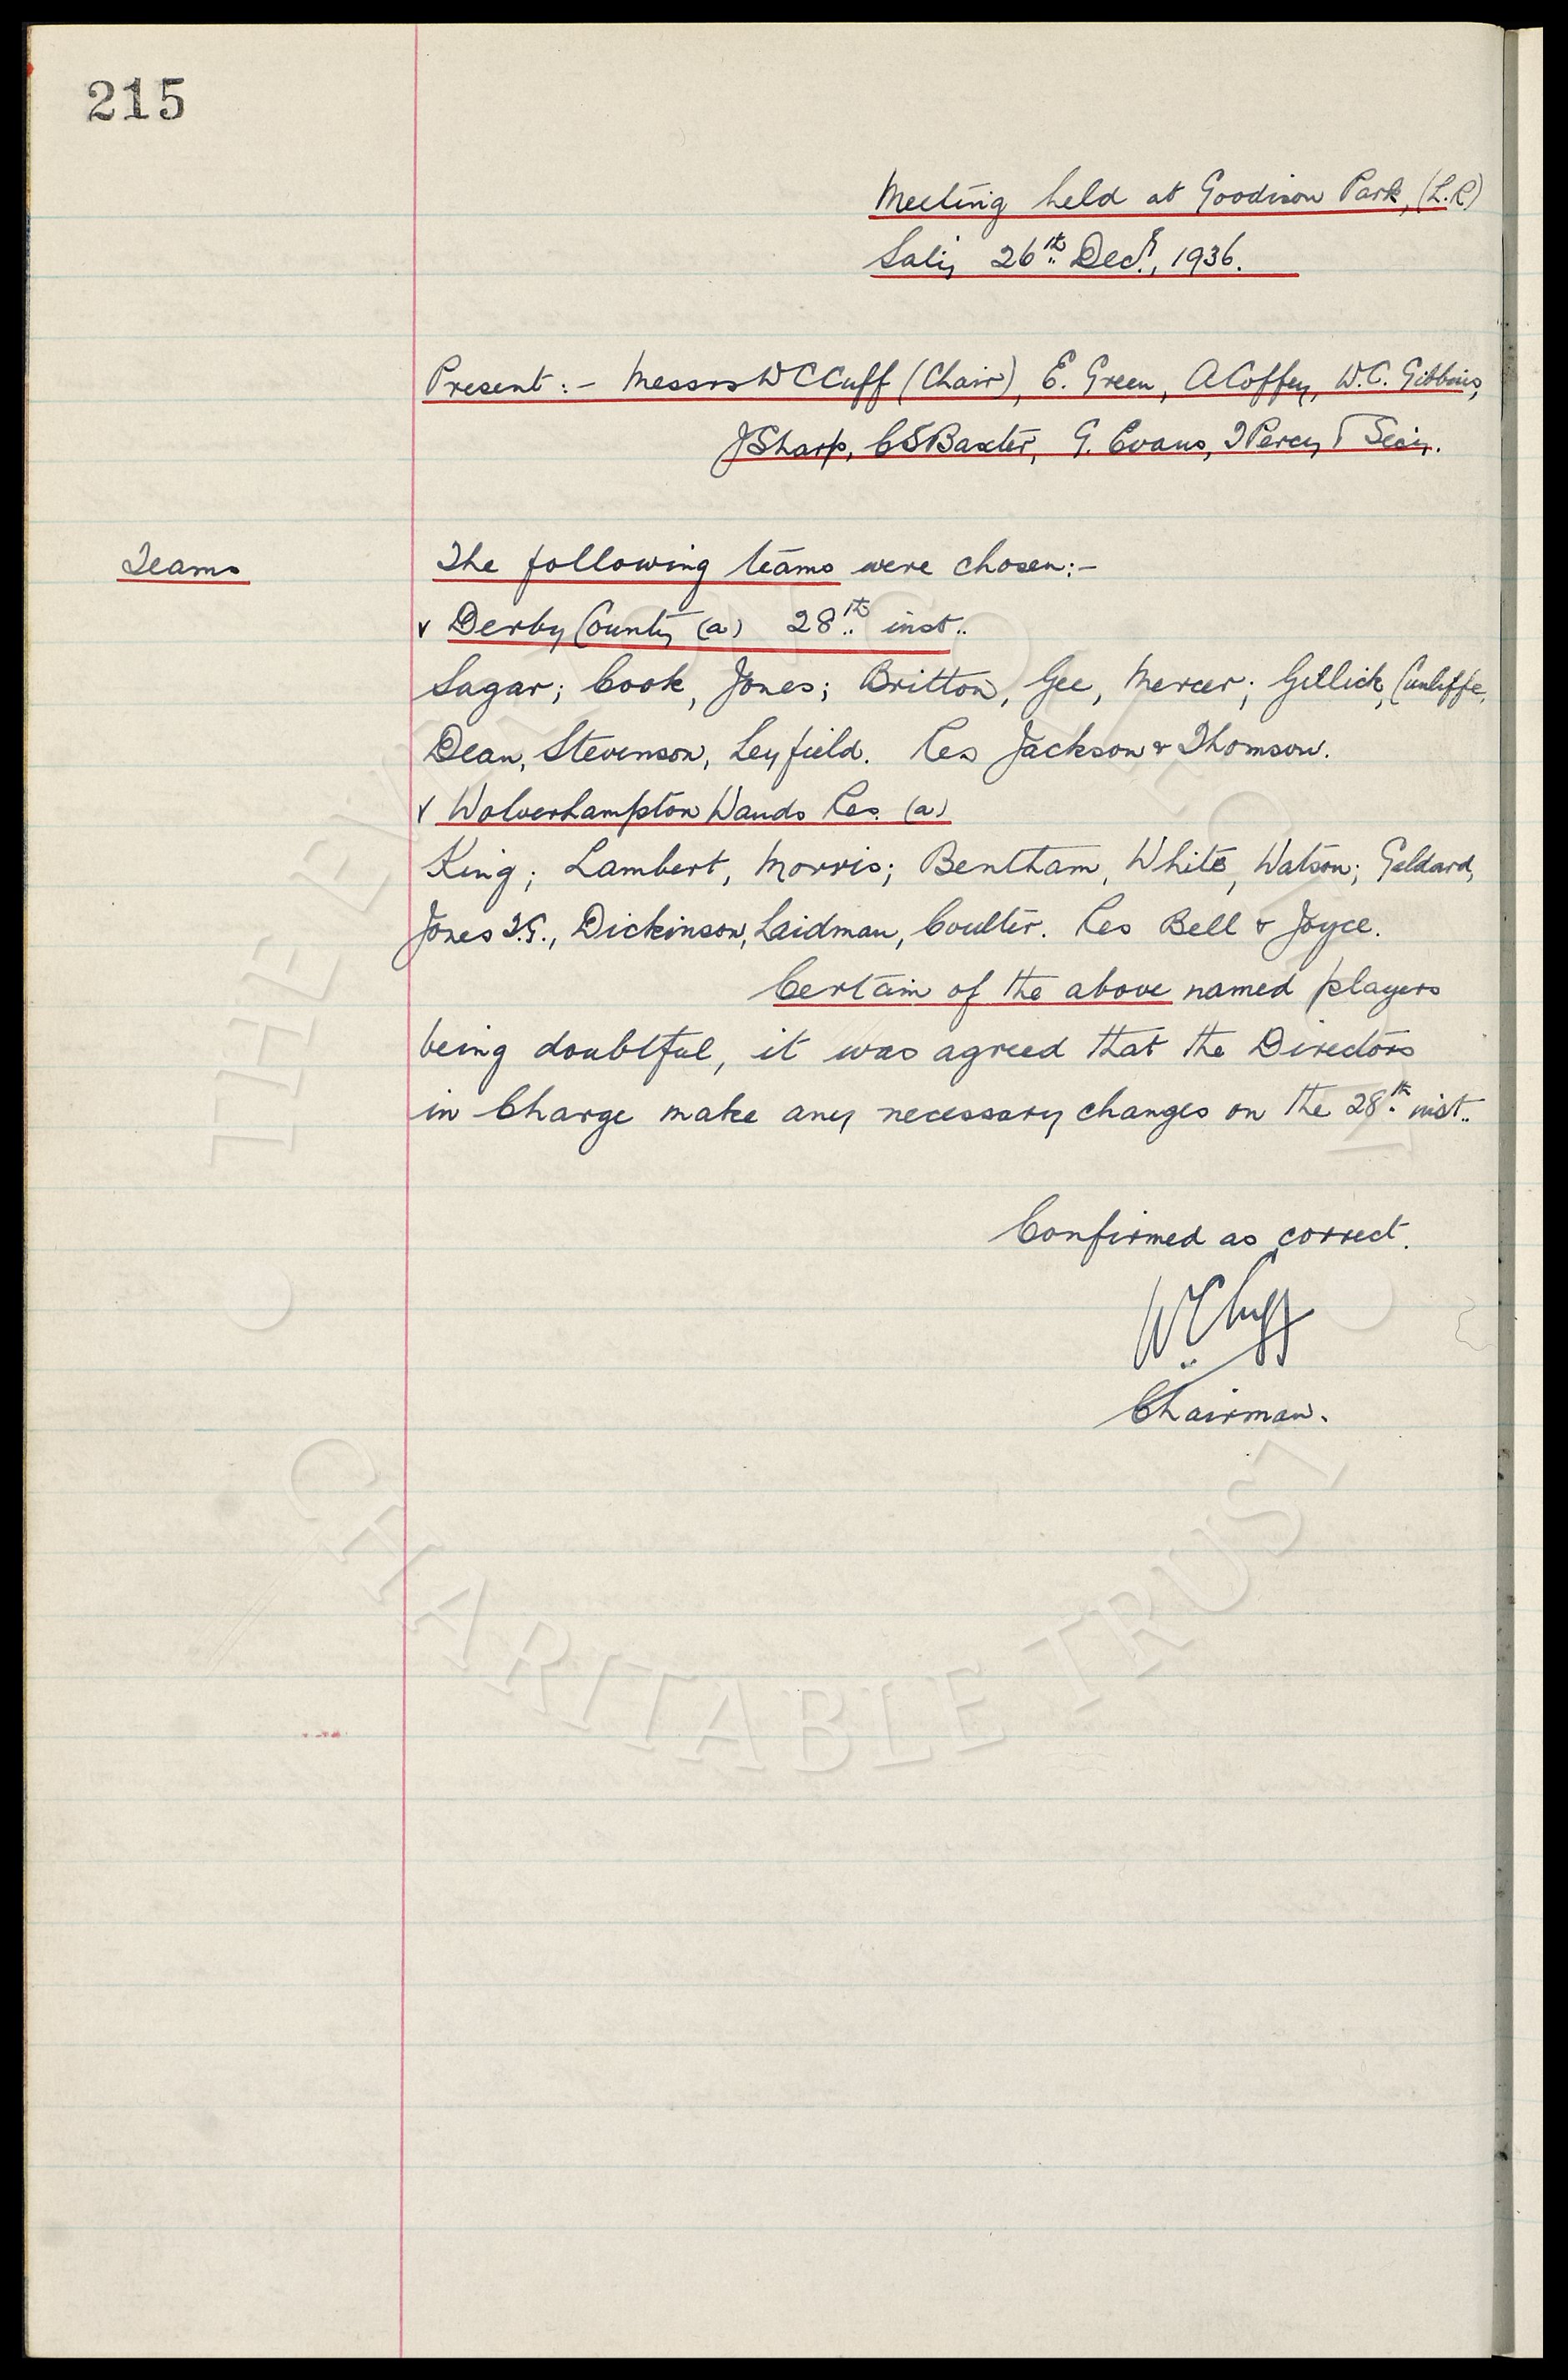 215
Meeting held at Goodison Park, (L.R)
Sat'y 26th Decr., 1936.
Present:- Messrs W C Cuff (Chair), E. Green, A Coffey, W.C. Gibbins,
J Sharp, C S Baxter, G. Evans, T Percy & Sec'y.
Teams
The following teams were chosen:-
v Derby County (a) 28th inst..
Sagar; Cook, Jones; Britton, Gee, Mercer; Gillick, Cunliffe,
Dean, Stevenson, Leyfield. Res Jackson & Thomson.
v Wolverhampton Wands Res. (a)
King; Lambert, Morris; Bentham, White, Watson; Geldard,
Jones T.G., Dickinson, Laidman, Coulter. Res Bell & Joyce.
Certain of the above named players
being doubtful, it was agreed that the Directors
in Charge make any necessary changes on the 28th inst..
Confirmed as correct.
W C Cuff
Chairman.
CHARITABLE TRUST